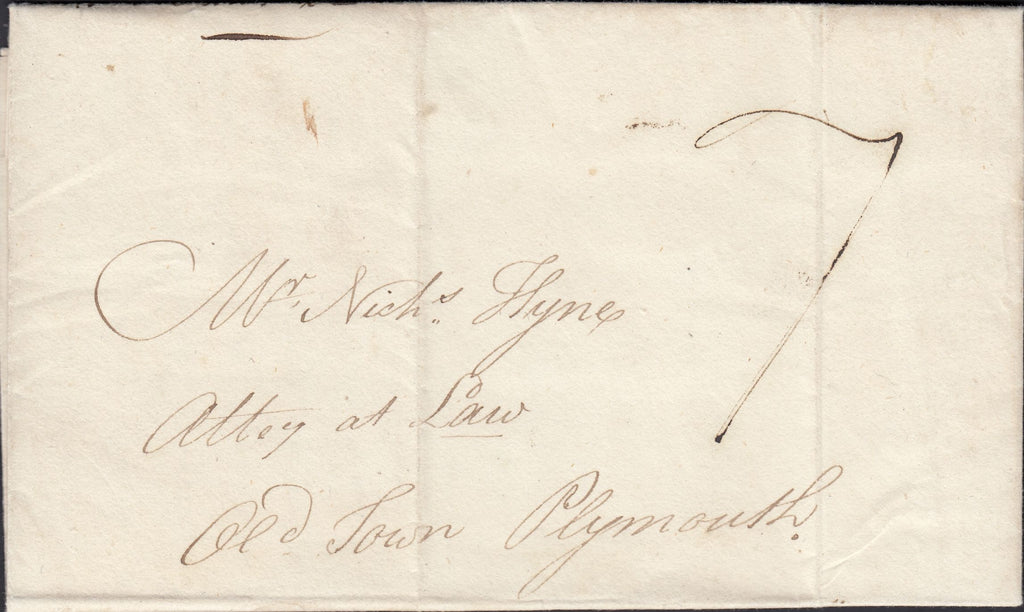 7
Mr. Nichs. Hyne
Attoy at Law
Old Town Plymouth.